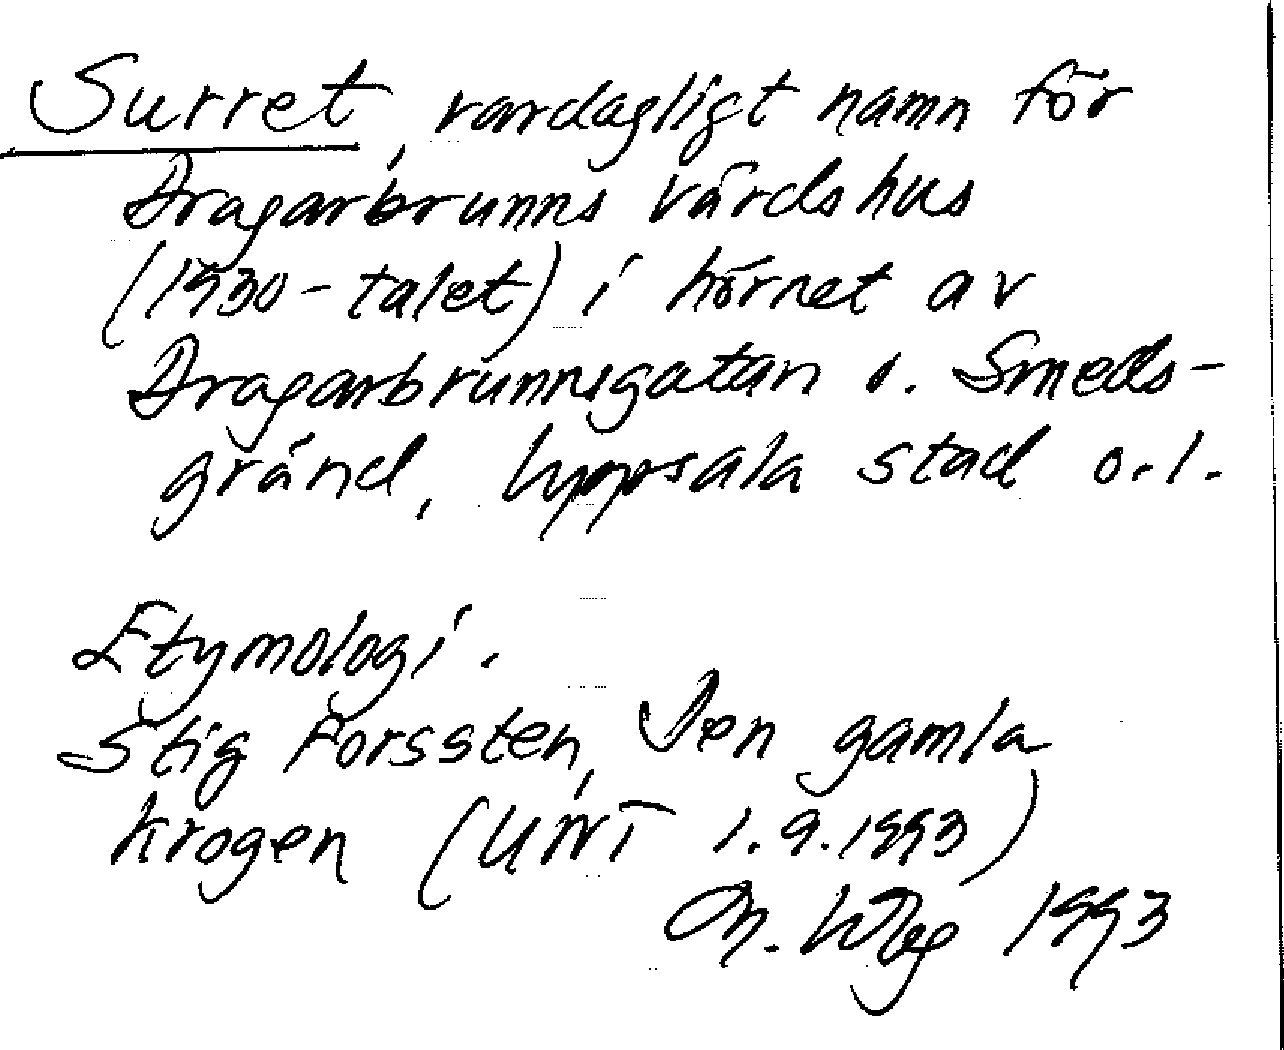 Surret, vardagligt namn för
Dragarbrunns värdshus
(1930-talet) i hörnet av
Dragarbrunnsgatan o. Smeds-
gränd, Uppsala stad o. l.
Etymologi.
Stig Forssten, Den gamla
krogen (UNT 1.9.1993)
M. 1993